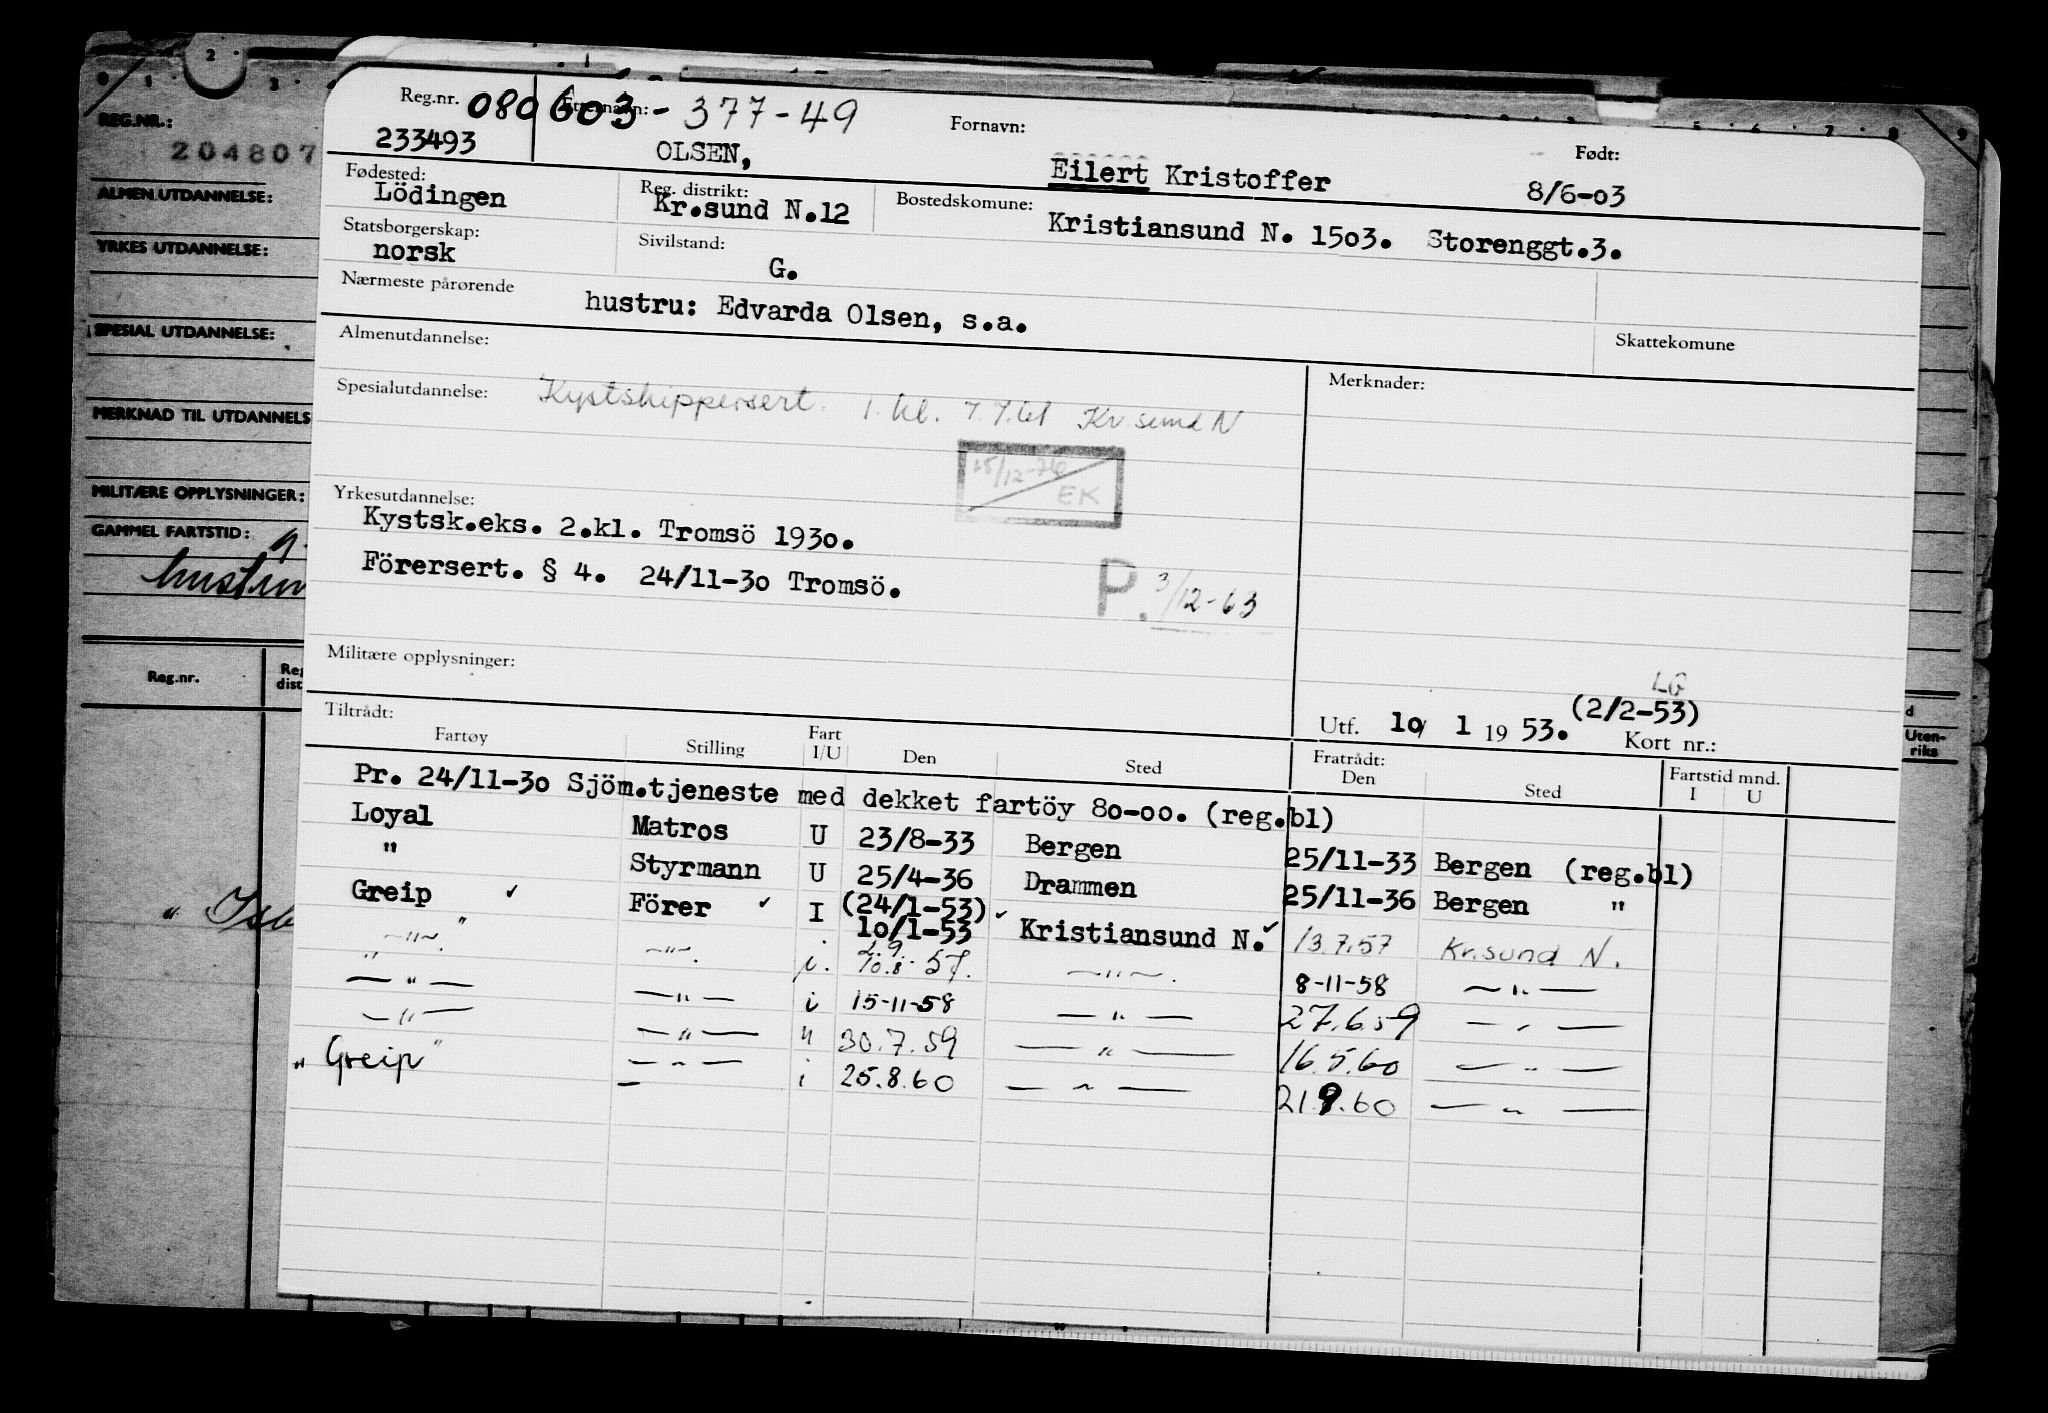 REG.NR.:
204807
ALMEN UTDANNELSE:
YRKES UTDANNELSE:
SPESIAL UTDANNELSE:
MERKNAD TIL UTDANNELS
MILITÆRE OPPLYSNINGER:
GAMMEL FARTSTID:
hustru
Reg.nr.
Reg
dist
Reg.nr. 080603-377-49
Etternavn: Fornavn: Født:
233493 OLSEN, Eilert Kristoffer 8/6-03
Fødested: Reg. distrikt: Bostedskomune:
Lödingen Kr.sund N.12 Kristiansund N. 1503. Storenggt.3.
Statsborgerskap: Sivilstand:
norsk G.
Nærmeste pårørende hustru: Edvarda Olsen, s.a.
Almenutdannelse: Skattekomune
Spesialutdannelse: Kystskippersert. 1. kl. 7.7.61 Kr.sund N Merknader:
15/12-76
EK
Yrkesutdannelse:
Kystsk.eks. 2.kl. Tromsö 1930.
Förersert. § 4. 24/11-30 Tromsö. P. 3/12-63
Militære opplysninger:
LG
(2/2-53)
Utf. 10/ 1 19 53. Kort nr.:
Tiltrådt: Fratrådt: Fartstid mnd.
Fartøy Stilling Fart I/U Den Sted Den Sted I U
Uten-
riks
Pr. 24/11-30 Sjöm.tjeneste med dekket fartöy 80-00. (reg.bl)
Loyal Matros U 23/8-33 Bergen 25/11-33 Bergen (reg.bl)
" Styrmann U 25/4-36 Drammen 25/11-36 Bergen "
Greip ✓ Förer ✓ I (24/1-53) ✓
10/1-53 Kristiansund N. ✓ 13.7.57 Kr.sund N.
—"—. —"—. i. 57. —"—. 8-11-58 —"—
—"— —"— i 15-11-58 —"— 27.6.59 —"—
—"— —"— " 30.7.59 —"— 16.5.60 —"—
"Greip" —"— i 25.8.60 —"— 21.9.60 —"—